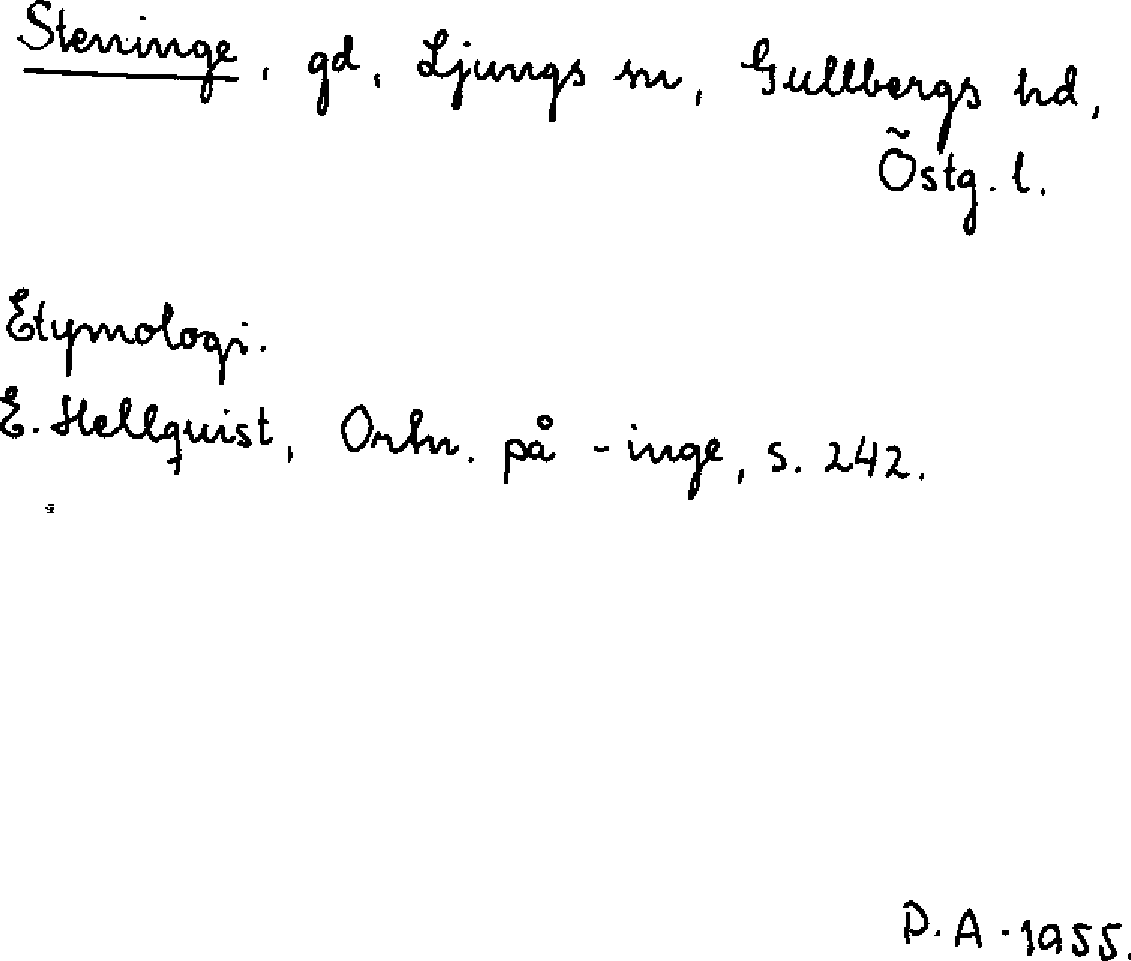 Steninge, gd, Ljungs sn, Gullbergs hd,
Östg. l.
Etymologi.
E. Hellquist, Ortn. på -inge, s. 242.
P. A. 1955.